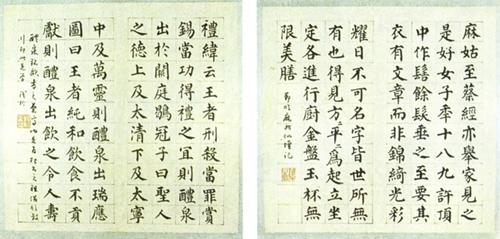 麻姑至蔡經亦舉家見之
是好女子年十八九許頂
中作髻餘髮垂之至要其
衣有文章而非錦綺光彩
耀日不可名字皆世所無
有也得見方〻平〻為起立坐
定各進行廚金盤玉杯無
限美膳
麻姑仙壇記
禮緯云王者刑殺當罪賞
錫當功得禮之宜則醴泉
出於闕庭鶡冠子曰聖人
之德上及太清下及太寧
中及萬靈則醴泉出瑞應
圖曰王者純和飲食不貢
獻則醴泉出飲之令人壽